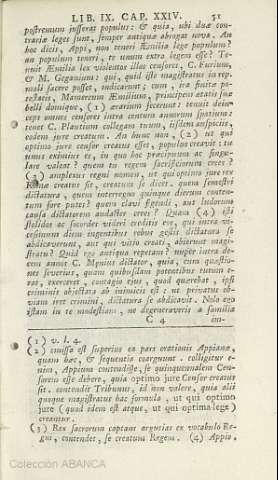 LIB. IX. CAP. XXIV. 51
postremum jusserat populus: & quia, ubi duæ con-
trariæ leges sunt, semper antiquæ abrogat nova. An
hoc dicis, Appi, non teneri Æmilia lege populum?
an populum teneri, te unum extra legem esse? Te-
nuit Æmilia lex violentos illos censores, C. Furium,
& M. Geganium: qui, quid iste magistratus in rep.
mali facere posset, indicarunt; cum, ira finitæ po-
testatis, Mamercum Æmilium, principem ætatis suæ
belli domique, (1) ærarium fecerunt: tenuit dein-
ceps omnes censores intra centum annorum spatium:
tenet C. Plautium collegam tuum, iisdem auspiciis,
eodem jure creatum. An hunc non, (2) ut qui
optimo jure censor creatus esset, populus creavit: tu
unus eximius es, in quo hoc præcipuum ac singu-
lare valeat? quem tu regem sacrificiorum crees?
(3) amplexus regni nomen, ut qui optimo jure rex
Romæ creatus sit, creatum se dicet. quem semestri
dictatura, quem interregno quinque dierum conten-
tum fore putes? quem clavi figendi, aut ludorum
causa dictatorem audacter crees? Quam (4) isti
stolidos ac socordes videri creditis eos, qui intra vi-
cesimum diem ingentibus rebus gestis dictatura se
abdicaverunt, aut qui vitio creati, abierunt magi-
stratu? Quid ego antiqua repetam? nuper intra de-
cem annos C. Mænius dictator, quia, cum quæstio-
nes severius, quam quibusdam potentibus tutum e-
rat, exerceret, contagio ejus, quod quærebat, ipsi
criminis objectata ab inimicis est; ut privatus ob-
viam iret crimini, dictatura se abdicavit. Nolo ego
istam in te modestiam, ne degeneraveris a familia
C 4 im-
(1) v. l. 4.
(2) emissa est superius ea pars orationis Appianæ,
quam hæc, & sequentia coarguunt. colligitur e-
nim, Appium contendisse, se quinquennalem Cen-
sorem esse debere, quia optimo jure Censor creatus
sit. contendit Tribunus, id non valere, quia alii
quoque magistratus hac formula, ut qui optimo
jure (quod idem est atque, ut qui optima lege)
creantur.
(3) Rex sacrorum captans argutias ex vocabulo Re-
gis, contendet, se creatum Regem. (4) Appio,
Colección ABANCA